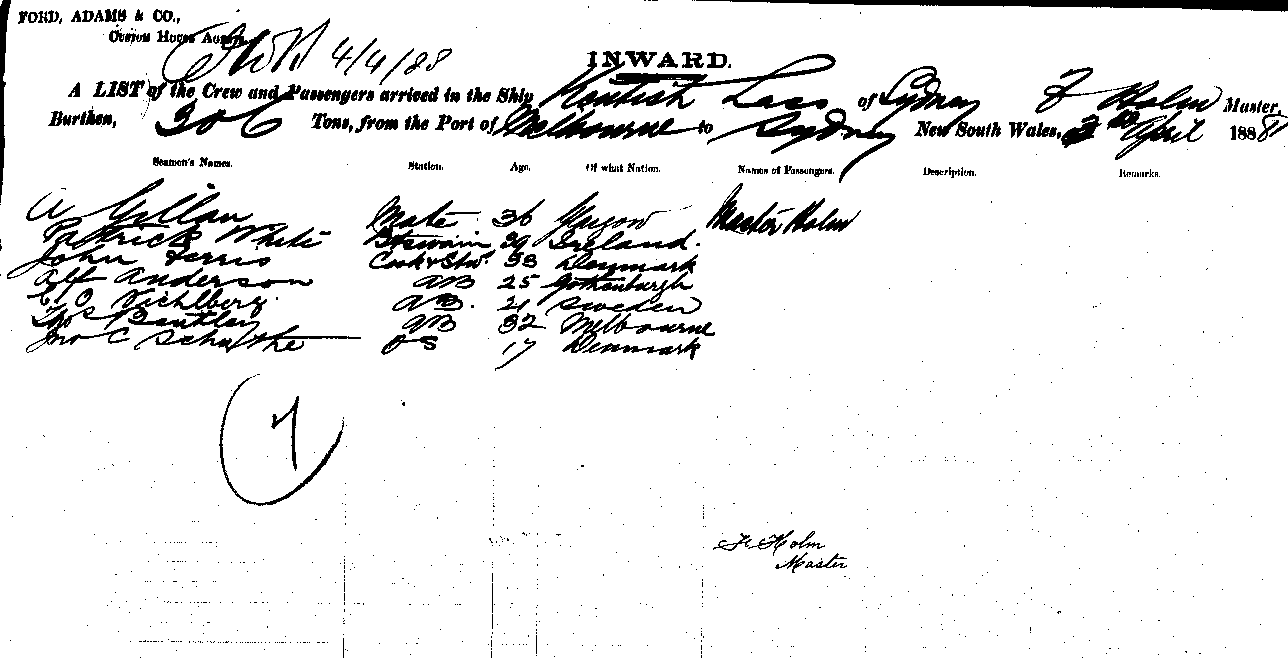 FORD, ADAMS & CO.,
Custom House Agents
4/4/88
INWARD.
A LIST of the Crew and Passengers arrived in the Ship Kentish Lass of Sydney F Holm Master,
Burthen, 306 Tons, from the Port of Melbourne to Sydney New South Wales, April 1888
Seamen's Names. Station. Age. Of what Nation. Names of Passengers. Description. Remarks.
A Gillan Mate 36 Glasgow Master Holm
Patrick White Btswain 39 Ireland.
John Ferris Cook & Stwd 38 Denmark
Alf Anderson AB 25 Gothenburgh
C O Vichlberg AB. 21 Sweden
Thos Bentley AB 32 Melbourne
Jno C OS 17 Denmark
7
Fr Holm
Master